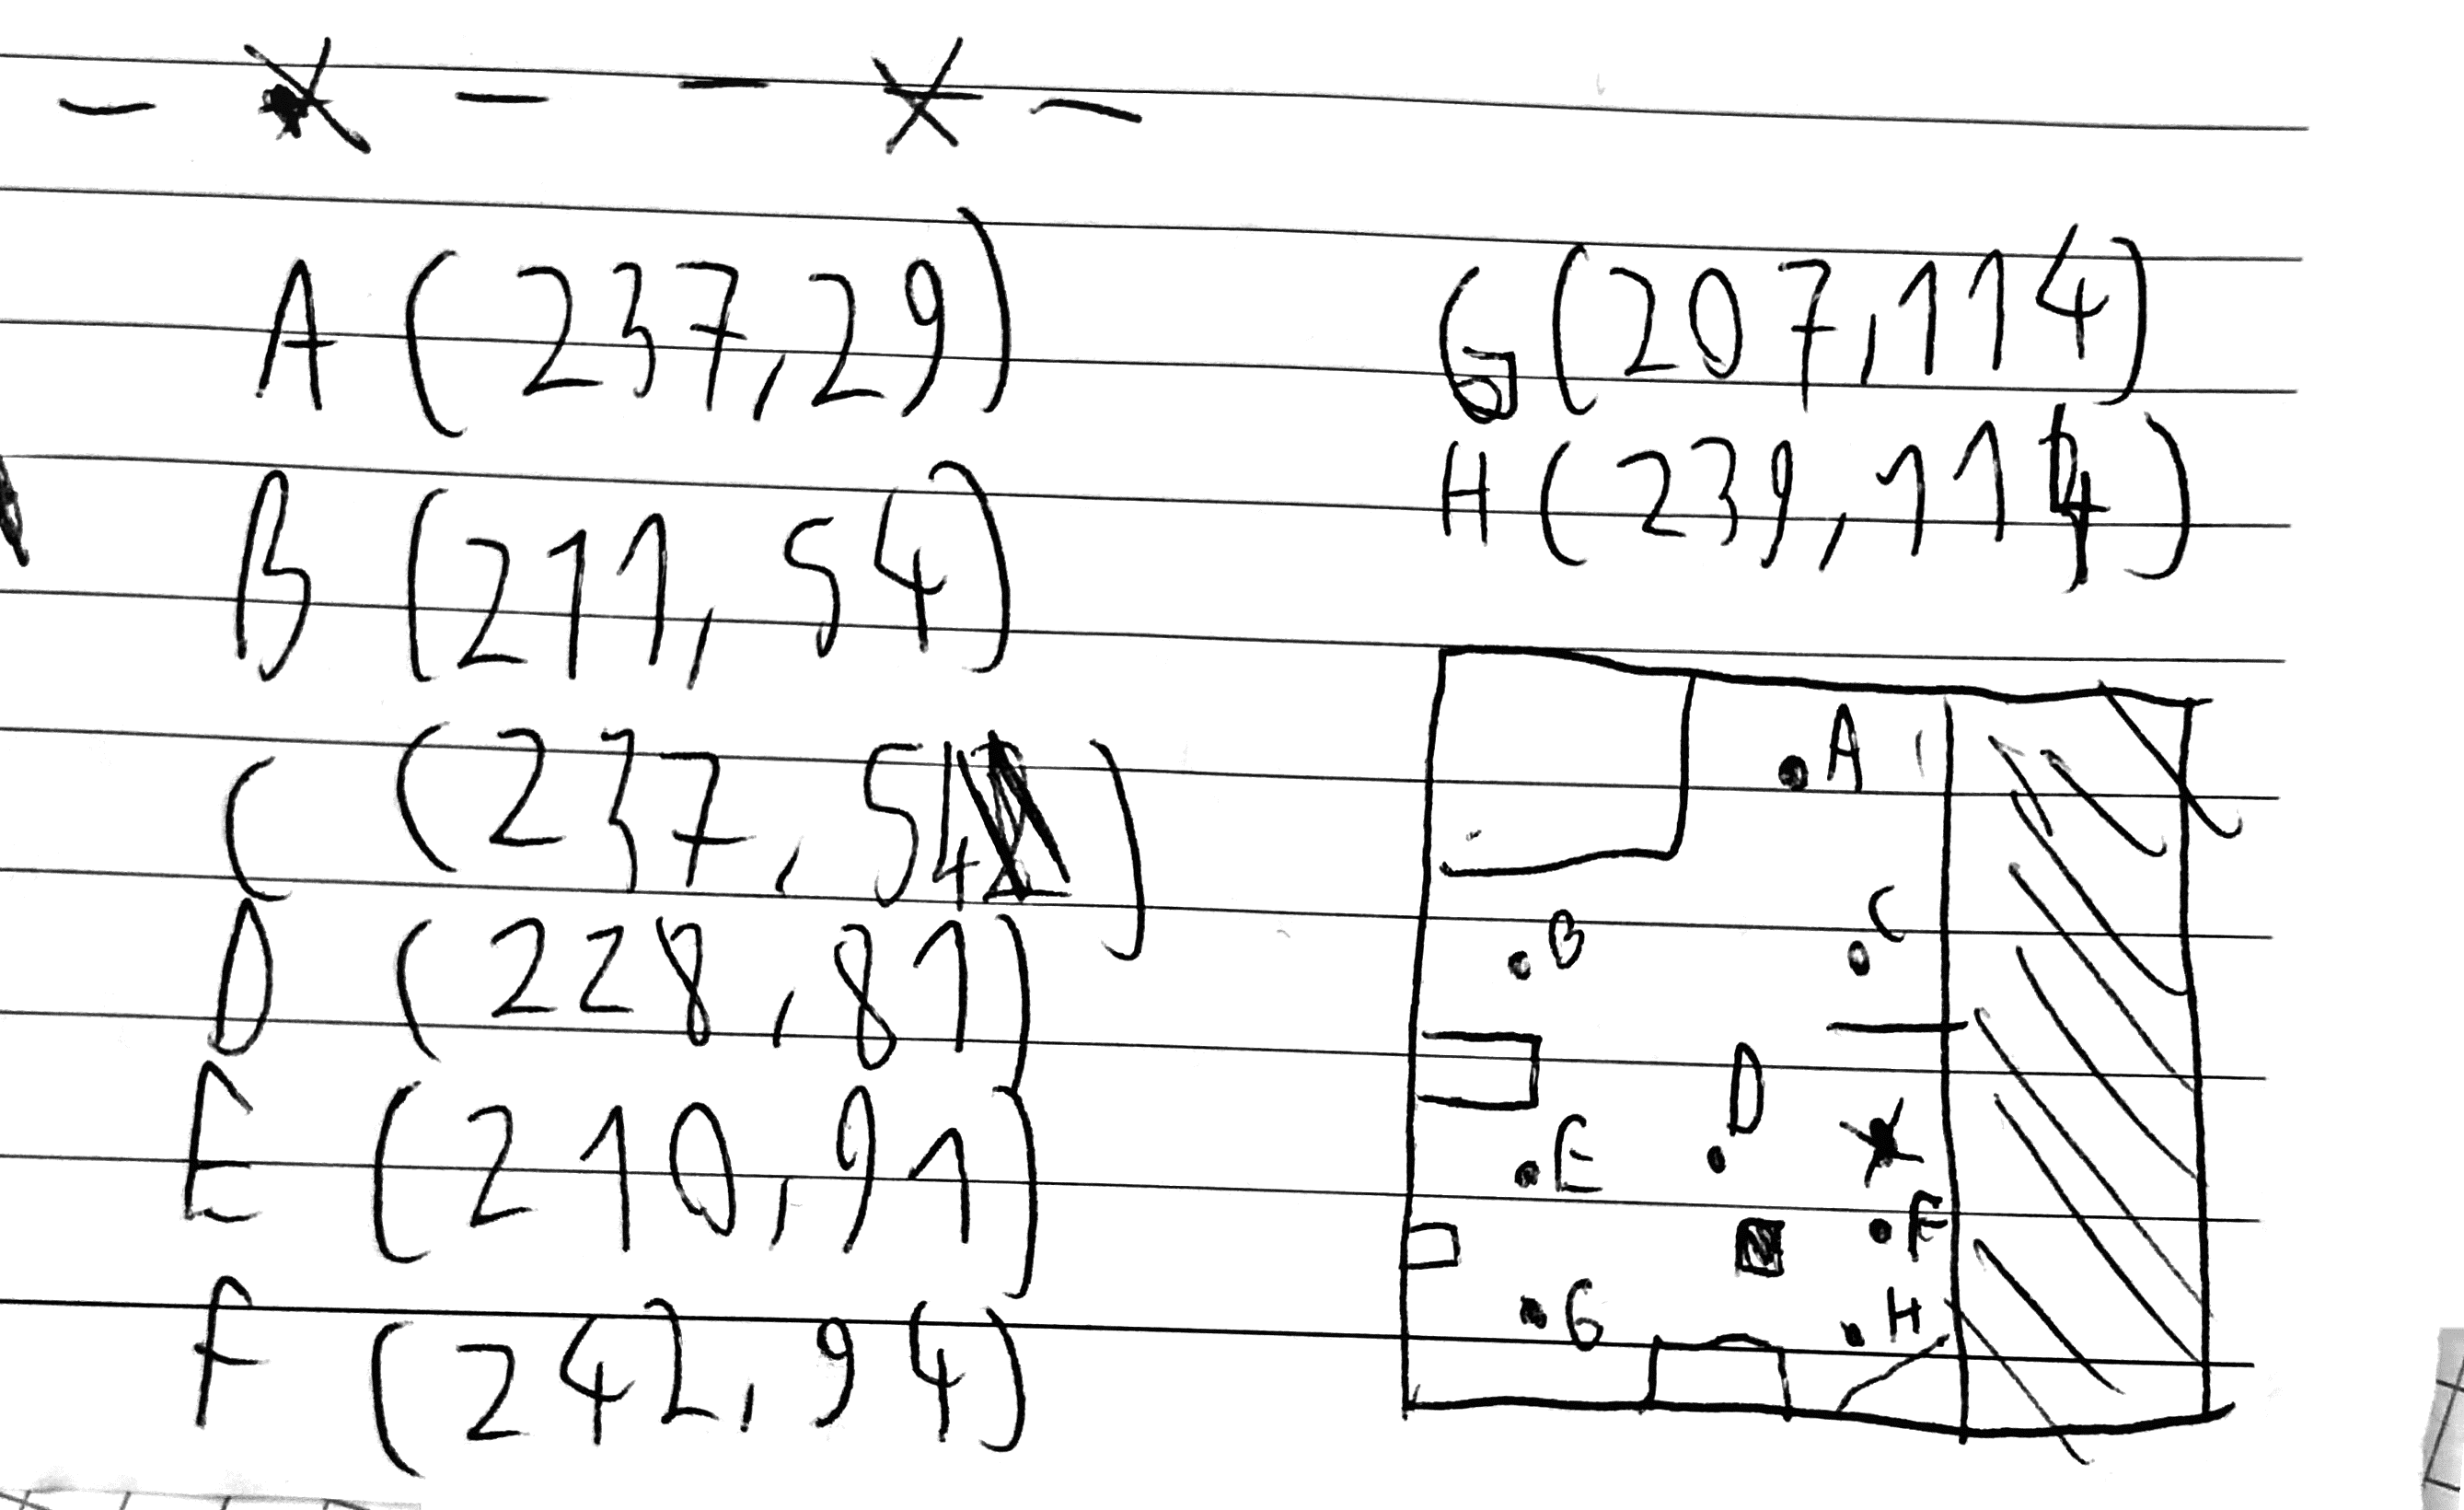 A (237,29)
B (211,54)
C (237,54)
D (228,81)
E (210,91)
F (242,94)
G (207,114)
H (239,114)
A
B
C
D
E
F
G
H